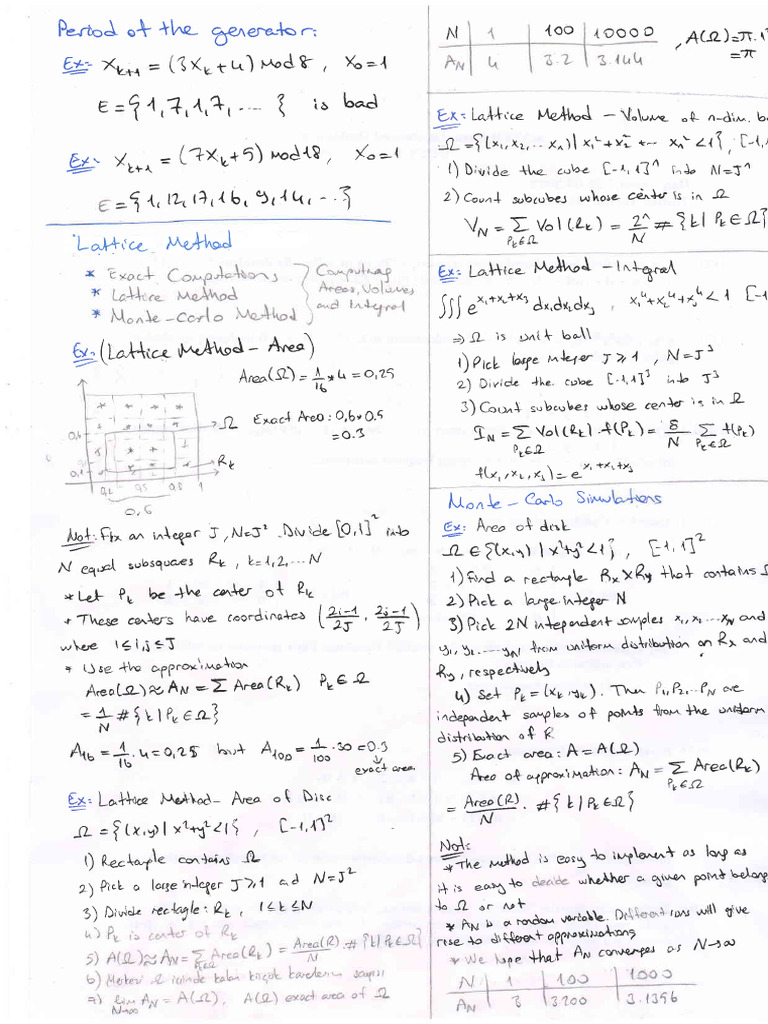 Period of the generator:
Ex: x_{k+1} = (3x_k + 4) mod 8 , x_0 = 1
E = {1, 7, 1, 7, ... } is bad
Ex: x_{k+1} = (7x_k + 5) mod 18 , x_0 = 1
E = {1, 12, 17, 16, 9, 14, ...}
Lattice Method
* Exact Computations
* Lattice Method
* Monte-Carlo Method
Computing
Areas, Volumes
and Integral
Ex: (Lattice Method - Area)
Area(Ω) = 1/16 * 4 = 0,25
Exact Area: 0,6 * 0.5
= 0.3
Ω
R_k
0,6
0,1
0,2 0,5 0,8 1
0,6
Not: Fix an integer J, N=J². Divide [0,1]² into
N equal subsquares R_k, k=1,2,... N
* Let P_k be the center of R_k
* These centers have coordinates (2i-1/2J, 2j-1/2J)
where 1 ≤ i,j ≤ J
* Use the approximation
Area(Ω) ≈ A_N = Σ Area(R_k) P_k ∈ Ω
= 1/N #{k | P_k ∈ Ω}
A_16 = 1/16 . 4 = 0,25 but A_100 = 1/100 . 30 = 0.3
exact area
Ex: Lattice Method - Area of Disc
Ω = {(x,y) | x²+y² < 1} , [-1,1]²
1) Rectangle contains Ω
2) Pick a large integer J ≥ 1 and N = J²
3) Divide rectagle: R_k, 1 ≤ k ≤ N
4) P_k is center of R_k
5) A(Ω) ≈ A_N = Σ_{P_k∈Ω} Area(R_k) = Area(R)/N . #{k | P_k ∈ Ω}
6) Merkezi Ω icinde kalan küçük karelerin sayısı
7) lim_{N→∞} A_N = A(Ω), A(Ω) exact area of Ω
N | 1 | 100 | 10000
A_N | 4 | 3.2 | 3.144
, A(Ω) = π.1²
= π
Ex: Lattice Method - Volume of n-dim.
Ω = {(x_1, x_2, ... x_n) | x_1² + x_2² + ... x_n² < 1}, [-1,
1) Divide the cube [-1,1]^n into N = J^n
2) Count subcubes whose center is in Ω
V_N = Σ_{P_k∈Ω} Vol(R_k) = 2^n/N #{k | P_k ∈ Ω}
Ex: Lattice Method - Integral
∫∫∫ e^{x_1+x_2+x_3} dx_1 dx_2 dx_3 , x_1⁴ + x_2⁴ + x_3⁴ < 1 [-1
⇒ Ω is unit ball
1) Pick large integer J ≥ 1, N = J³
2) Divide the cube [-1,1]³ into J³
3) Count subcubes whose center is in Ω
I_N = Σ_{P_k∈Ω} Vol(R_k) . f(P_k) = 8/N Σ_{P_k∈Ω} f(P_k)
f(x_1, x_2, x_3) = e^{x_1+x_2+x_3}
Monte-Carlo Simulations
Ex: Area of disk
Ω ∈ {(x,y) | x²+y² < 1}, [-1,1]²
1) Find a rectangle R_x × R_y that contains Ω
2) Pick a large integer N
3) Pick 2N independent samples x_1, x_2, ... x_N and
y_1, y_2, ... y_N from uniform distribution on R_x and
R_y, respectively
4) Set P_k = (x_k, y_k). Then P_1, P_2, ... P_N are
independent samples of points from the uniform
distribution of R
5) Exact area: A = A(Ω)
Area of approximation: A_N = Σ_{P_k∈Ω} Area(R_k)
= Area(R)/N . #{k | P_k ∈ Ω}
Not:
* The method is easy to implement as long as
it is easy to decide whether a given point belong
to Ω or not
* A_N is a random variable. Different runs will give
rise to different approximations
* We hope that A_N converges as N→∞
N | 1 | 100 | 1000
A_N | 3 | 3.200 | 3.1396